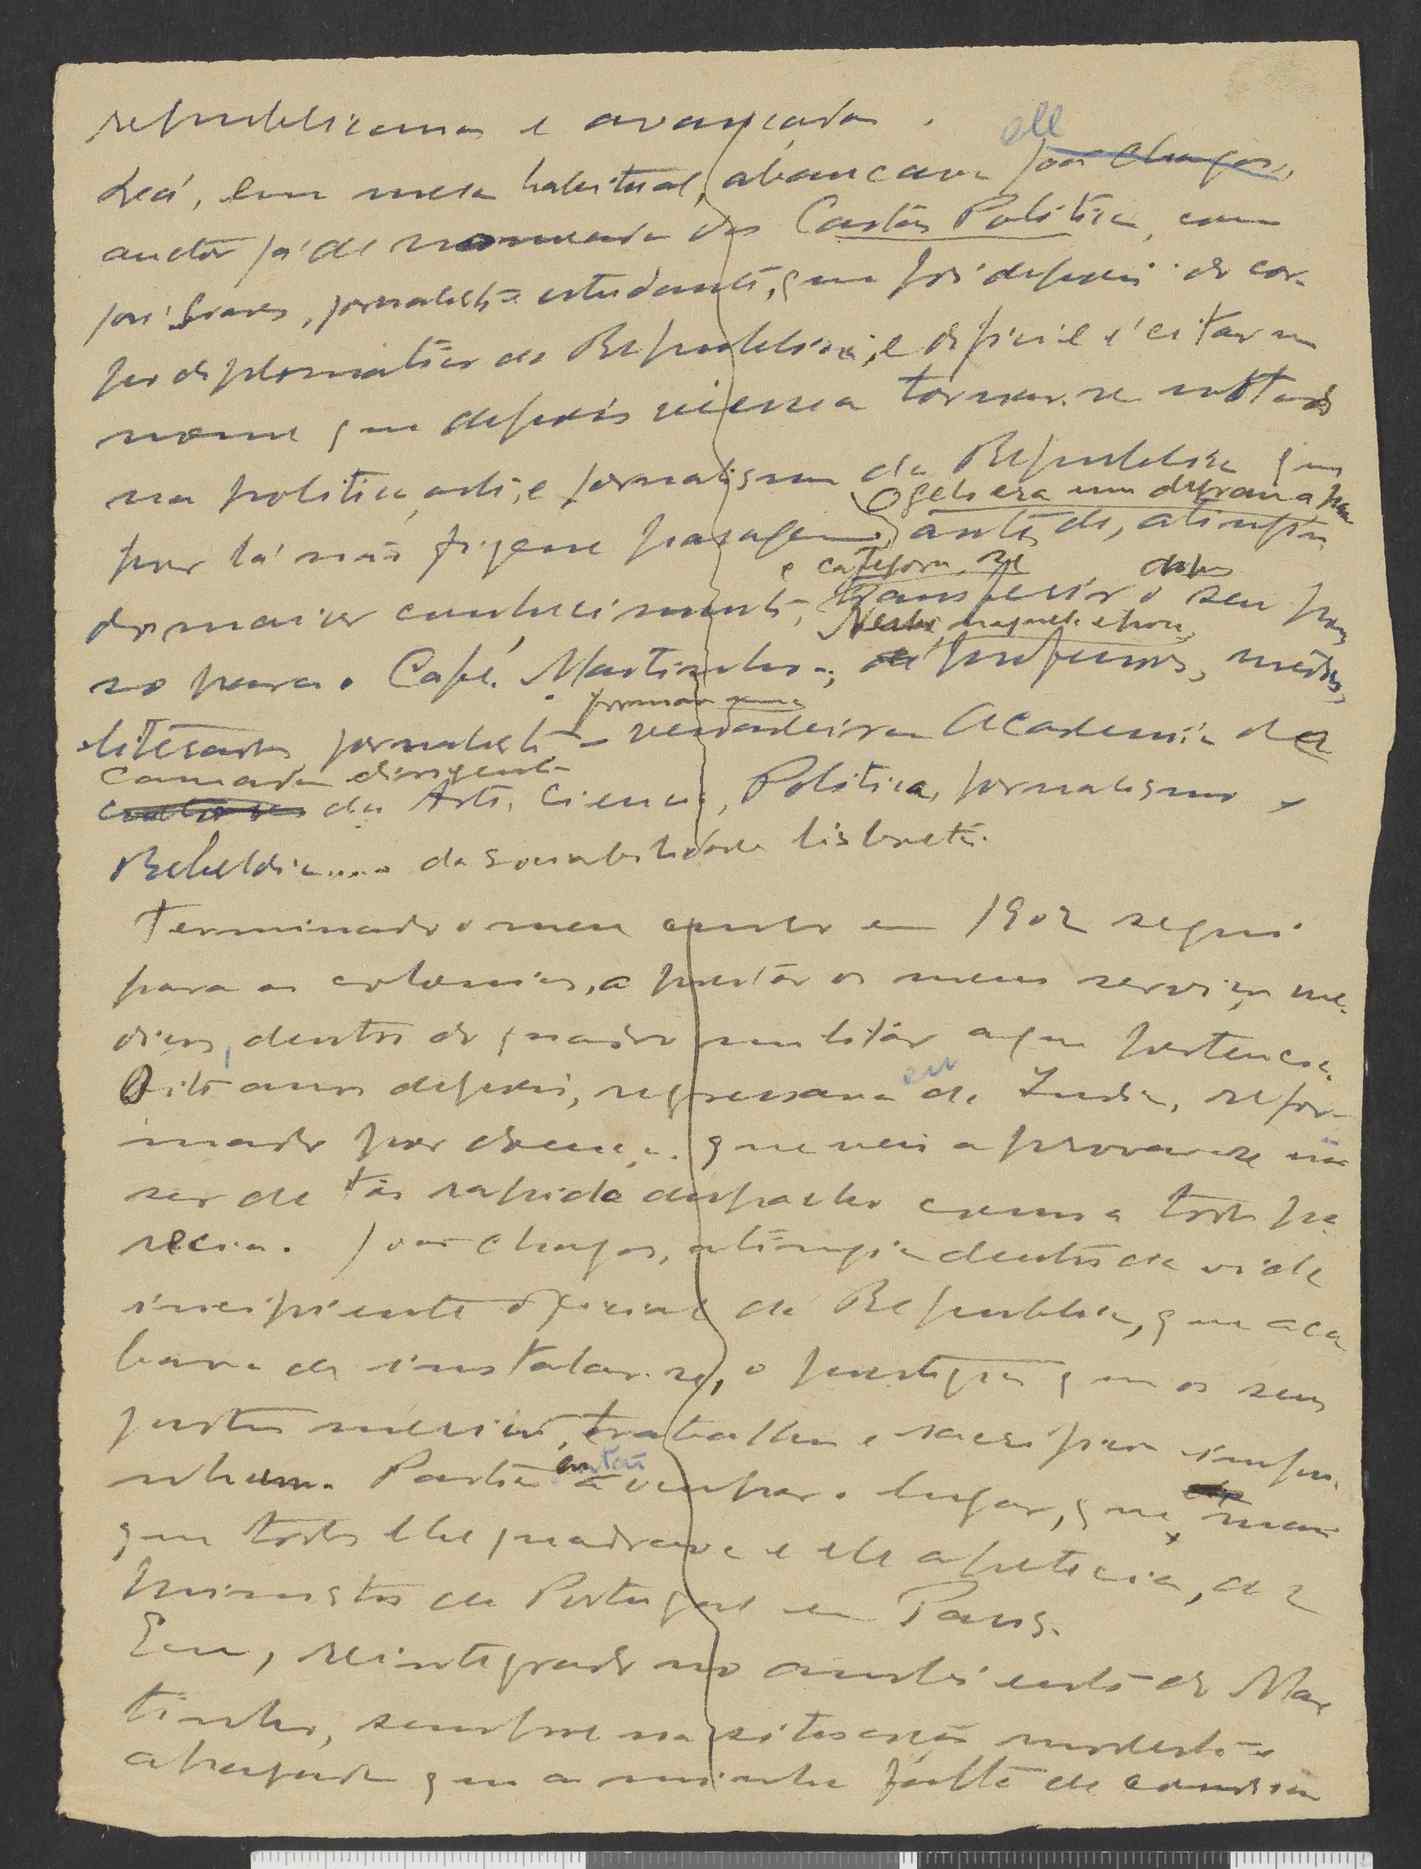 republicanos e avançados.
Lá, em mesa habitual, abancava elle João Chagas,
auctor já de nomeada das Cartas Politicas, com
José Soares, jornalista e estudante, que foi depois do cor-
po diplomatico da Republica, e dificil é citar um
nome que depois viesse a tornar-se notado
na politica, arte, e jornalismo da Republica que
por lá não fizesse passagem. O Gelo era um degrau apenas
antes de, atingin-
do maior conhecimento, e categoria, se transferir depois o seu pou-
so para o Café Martinho; Neste, naquela epoca, professores, medicos,
literatos jornalistas formavam uma verdadeira Academia da
camada dirigente da Arte, Ciencia, Politica, jornalismo e
Rebeldia.... da sociabilidade lisboeta.
Terminado o meu curso em 1902 segui
para as colonias, a prestar os meus serviços me-
dicos, dentro do quadro militar a que pertencia.
Oito anos depois, regressava eu da India, refor-
mado por doença que veiu a provar-se não
ser de tão rapido despacho como a todos pa-
recia. João Chagas, atingia dentro da vida
incipiente oficial da Republica, que aca-
bava de instalar-se, o prestigio que os seus
justos meritos, trabalhos e sacrificios impu-
nham. Partia então a ocupar o lugar, que mais
que todos lhe quadrava e ele apetecia, de
ministro de Portugal em Paris.
Eu, reintegrado no ambiente do Mar-
tinho, sempre na situação modesta e
apagada que a minha falta de